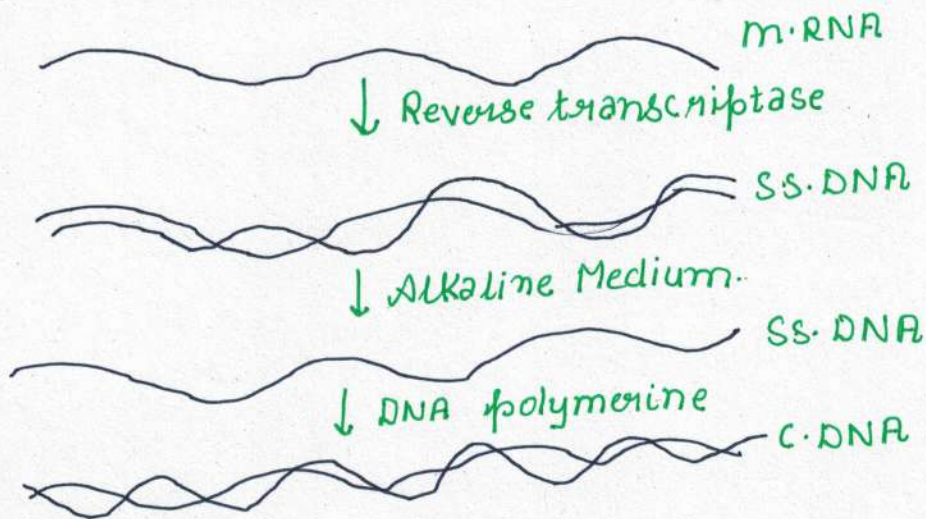 m.RNA
↓ Reverse transcriptase
SS.DNA
↓ Alkaline Medium.
SS.DNA
↓ DNA polymerine
C.DNA